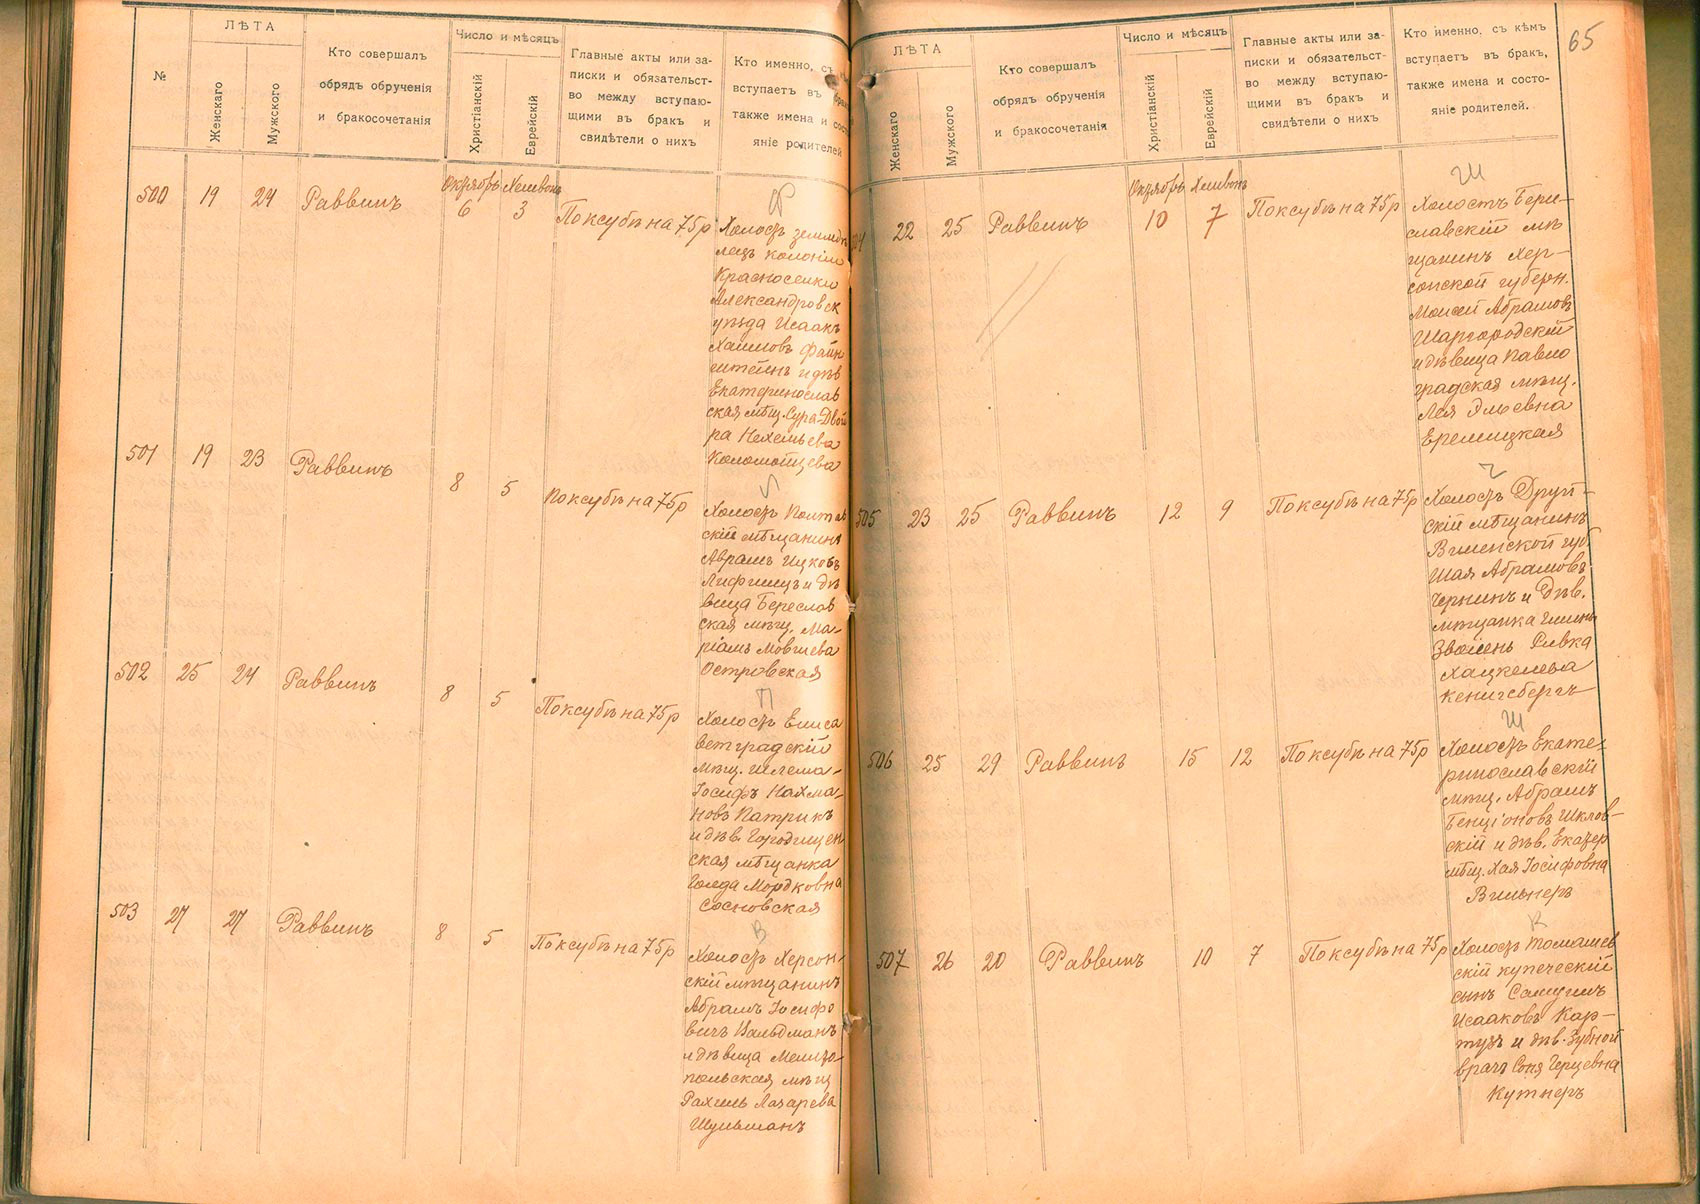 №
ЛѢТА
Женскаго
Мужского
Кто совершалъ
обрядъ обрученія
и бракосочетанія
Число и мѣсяцъ
Христіанскій
Еврейскій
Главные акты или за-
писки и обязательст-
во между вступаю-
щими въ бракъ и
свидѣтели о нихъ
Кто именно, съ
вступаетъ въ
также имена и сост
яніе родителей
500 19 24 Раввинъ
Октябрь Хешвонъ
6 3
По ксубѣ на 75 р
Ф
Холостъ землед
лецъ колоніи
Красноселки
Александровск
уѣзда Исаакъ
Хаимовъ Файн
штейнъ и дѣв
Екатеринослав
ская мѣщ. Сура-Двой
ра Нехемьева
Коломойцева
501 19 23 Раввинъ 8 5 По ксубѣ на 75 р
Холостъ Полтав
скій мѣщанинъ
Аврамъ Ицковъ
Лифшицъ и дѣ
вица Береслав
ская мѣщ. Ма-
ріамъ Мовшева
Островская
502 25 24 Раввинъ 8 5 По ксубѣ на 75 р
П
Холостъ Елиса
ветградскій
мѣщ. Шлема-
Іосифъ Нахма-
новъ Патрикъ
и дѣв. Городищен
ская мѣщанка
Голда Мордковна
Сосновская
503 27 27 Раввинъ 8 5 По ксубѣ на 75 р
В
Холостъ Херсон-
скій мѣщанинъ
Абрамъ Іосифо
вичъ Вальдманъ
и дѣвица Мелито-
польская мѣщ
Рахиль Лазарева
Шульманъ
65
ЛѢТА
Женскаго
Мужского
Кто совершалъ
обрядъ обрученія
и бракосочетанія
Число и мѣсяцъ
Христіанскій
Еврейскій
Главные акты или за-
писки и обязательст-
во между вступаю-
щими въ бракъ и
свидѣтели о нихъ
Кто именно, съ кѣмъ
вступаетъ въ бракъ,
также имена и состо-
яніе родителей.
22 25 Раввинъ
Октябрь Хешвонъ
10 7
По ксубѣ на 75 р
Ш
Холостъ Бери-
славскій мѣ
щанинъ Хер-
сонской губерн.
Моисей Абрамовъ
Шаргородскій
и дѣвица Павло
градская мѣщ.
Лея Эльевна
Еремицкая
505 23 25 Раввинъ 12 9 По ксубѣ на 75 р
Ч
Холостъ Друй-
скій мѣщанинъ
Виленской губ.
Шая Абрамовъ
Чернинъ и Дѣв.
мѣщанка
Ривка
Хацкелева
Кенигсбергъ
506 25 29 Раввинъ 15 12 По ксубѣ на 75 р
Ш
Холостъ Екате-
ринославскій
мѣщ. Абрамъ
Бенціоновъ Шклов-
скій и дѣв. Екатер
мѣщ. Хая Іосифовна
Вильнеръ
507 26 20 Раввинъ 10 7 По ксубѣ на 75 р
К
Холостъ Томашев
скій купеческій
сынъ Самуилъ
Исааковъ Кар-
тузъ и дѣв. Зубной
врачъ Соня Герцевна
Кутнеръ